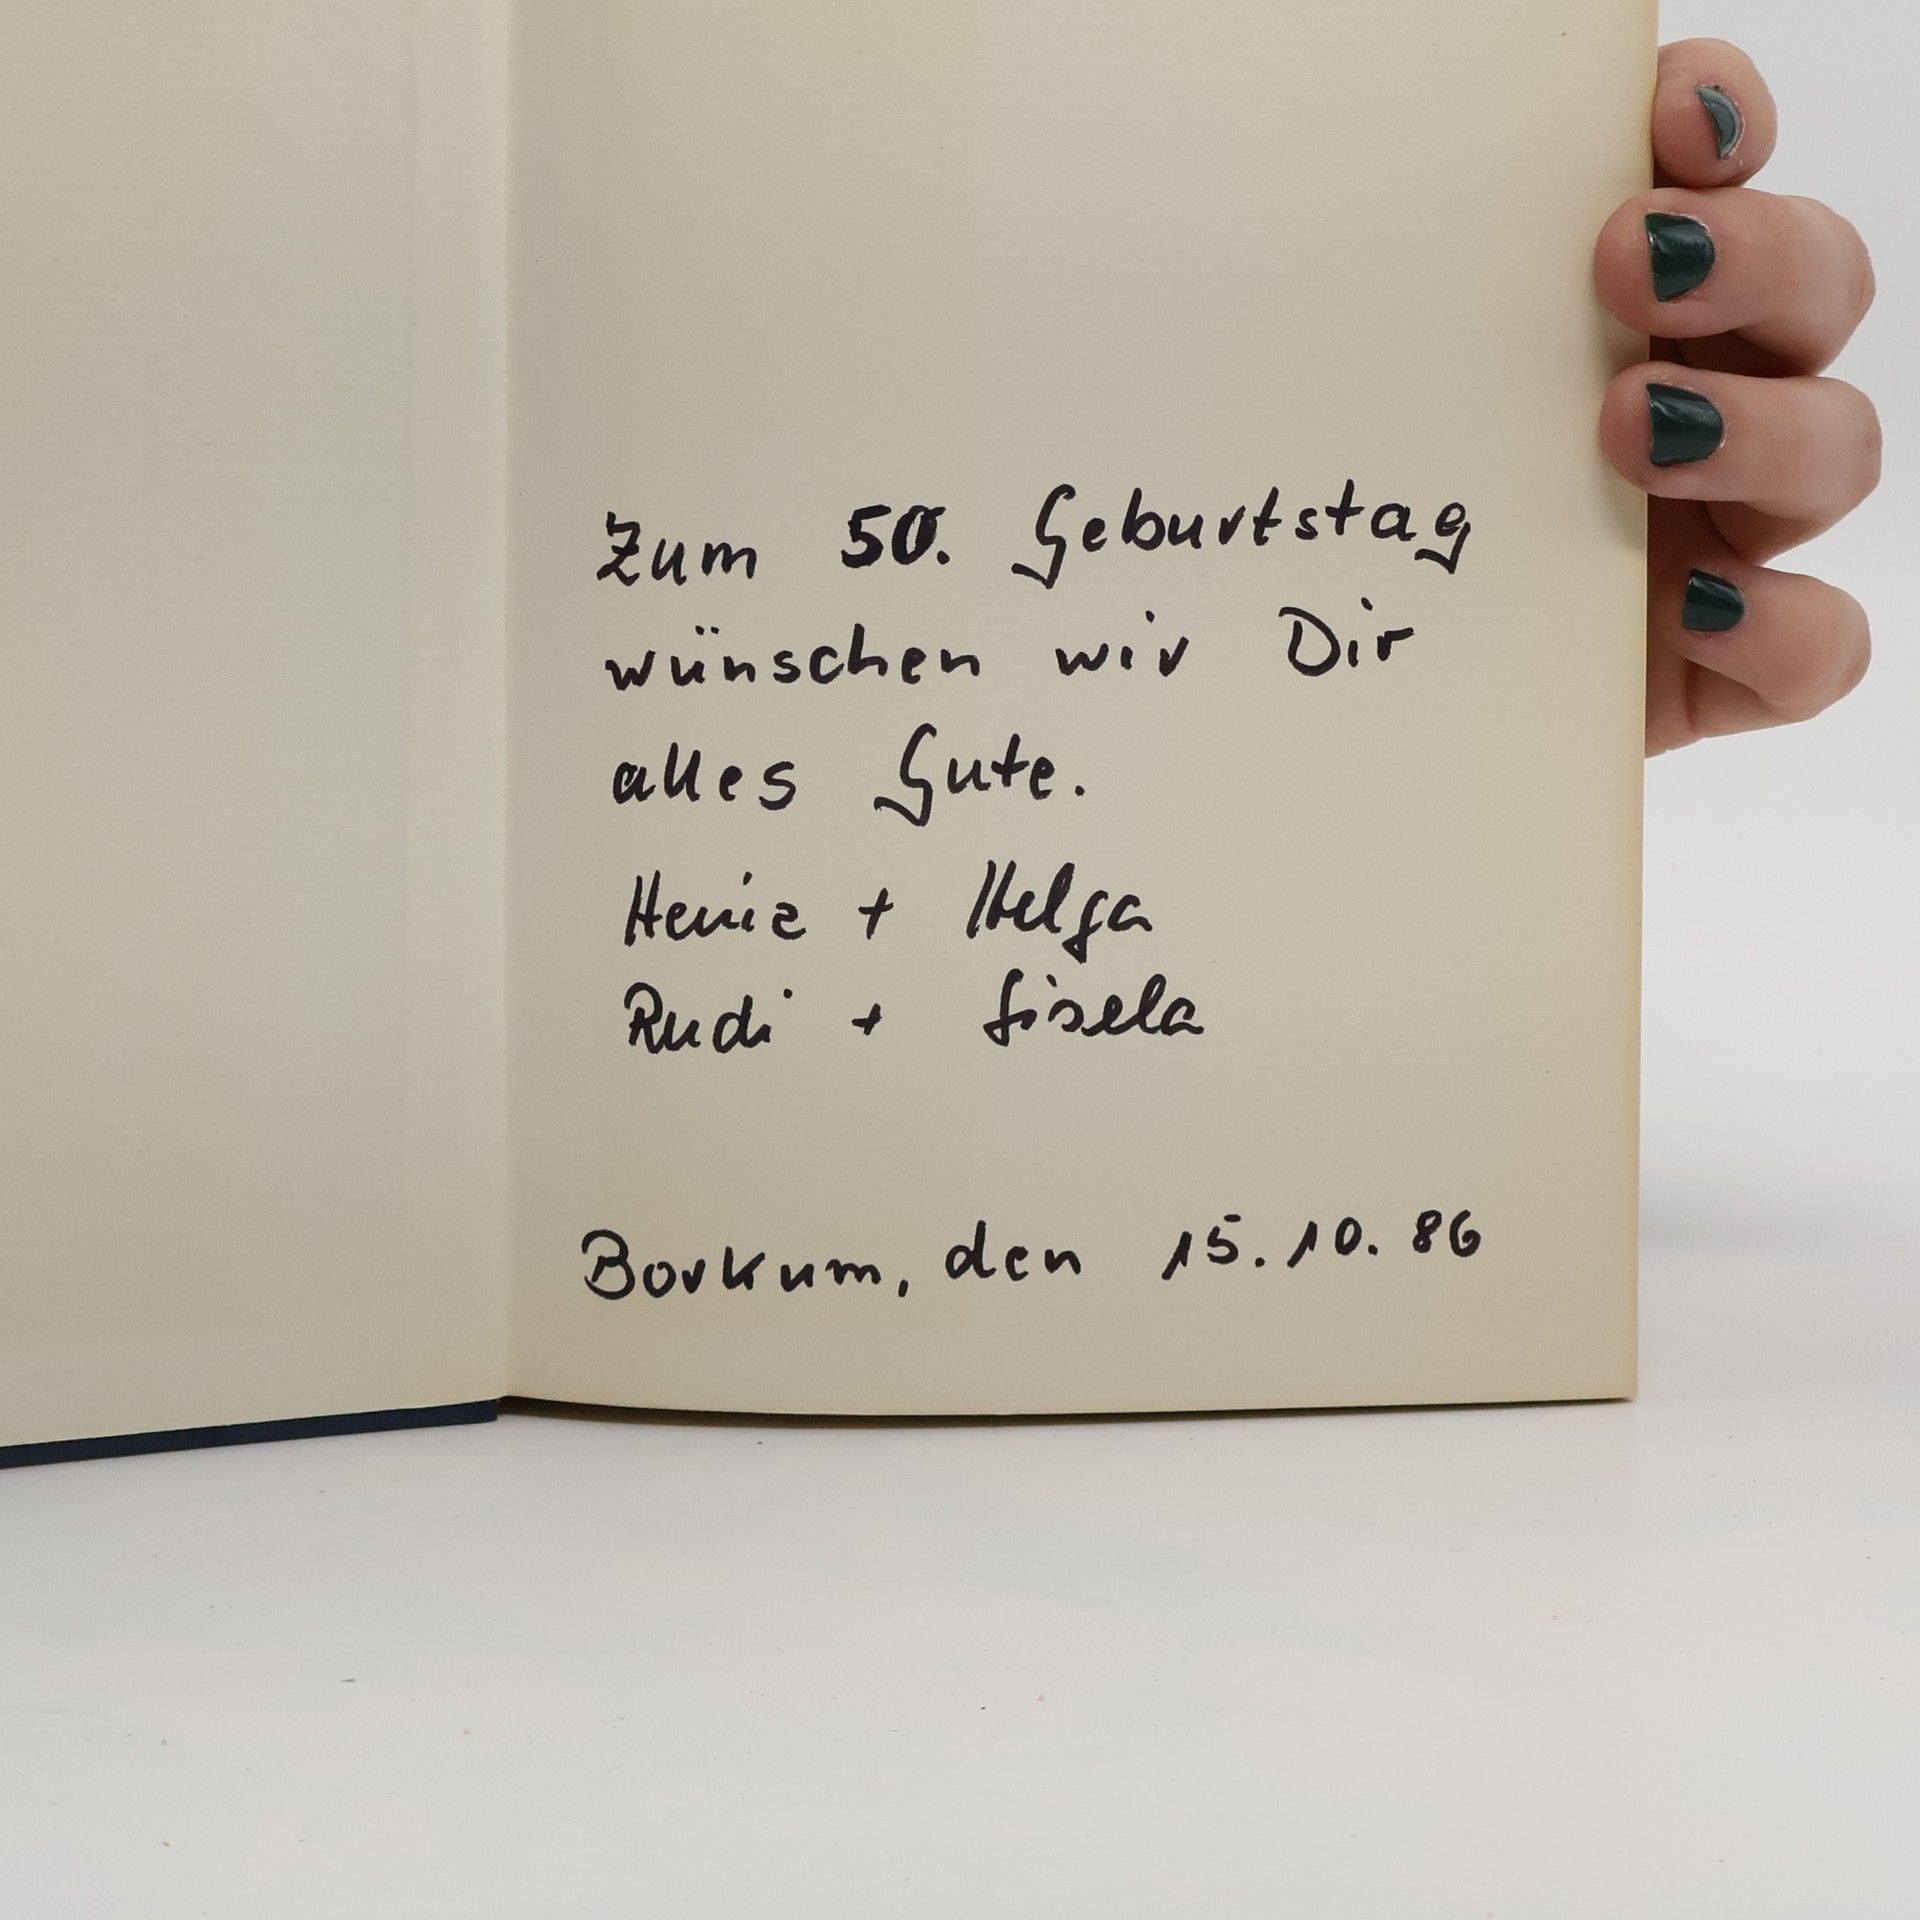 Zum 50. Geburtstag
wünschen wir Dir
alles Gute.
Heinz + Helga
Rudi + Gisela
Borkum, den 15.10.86